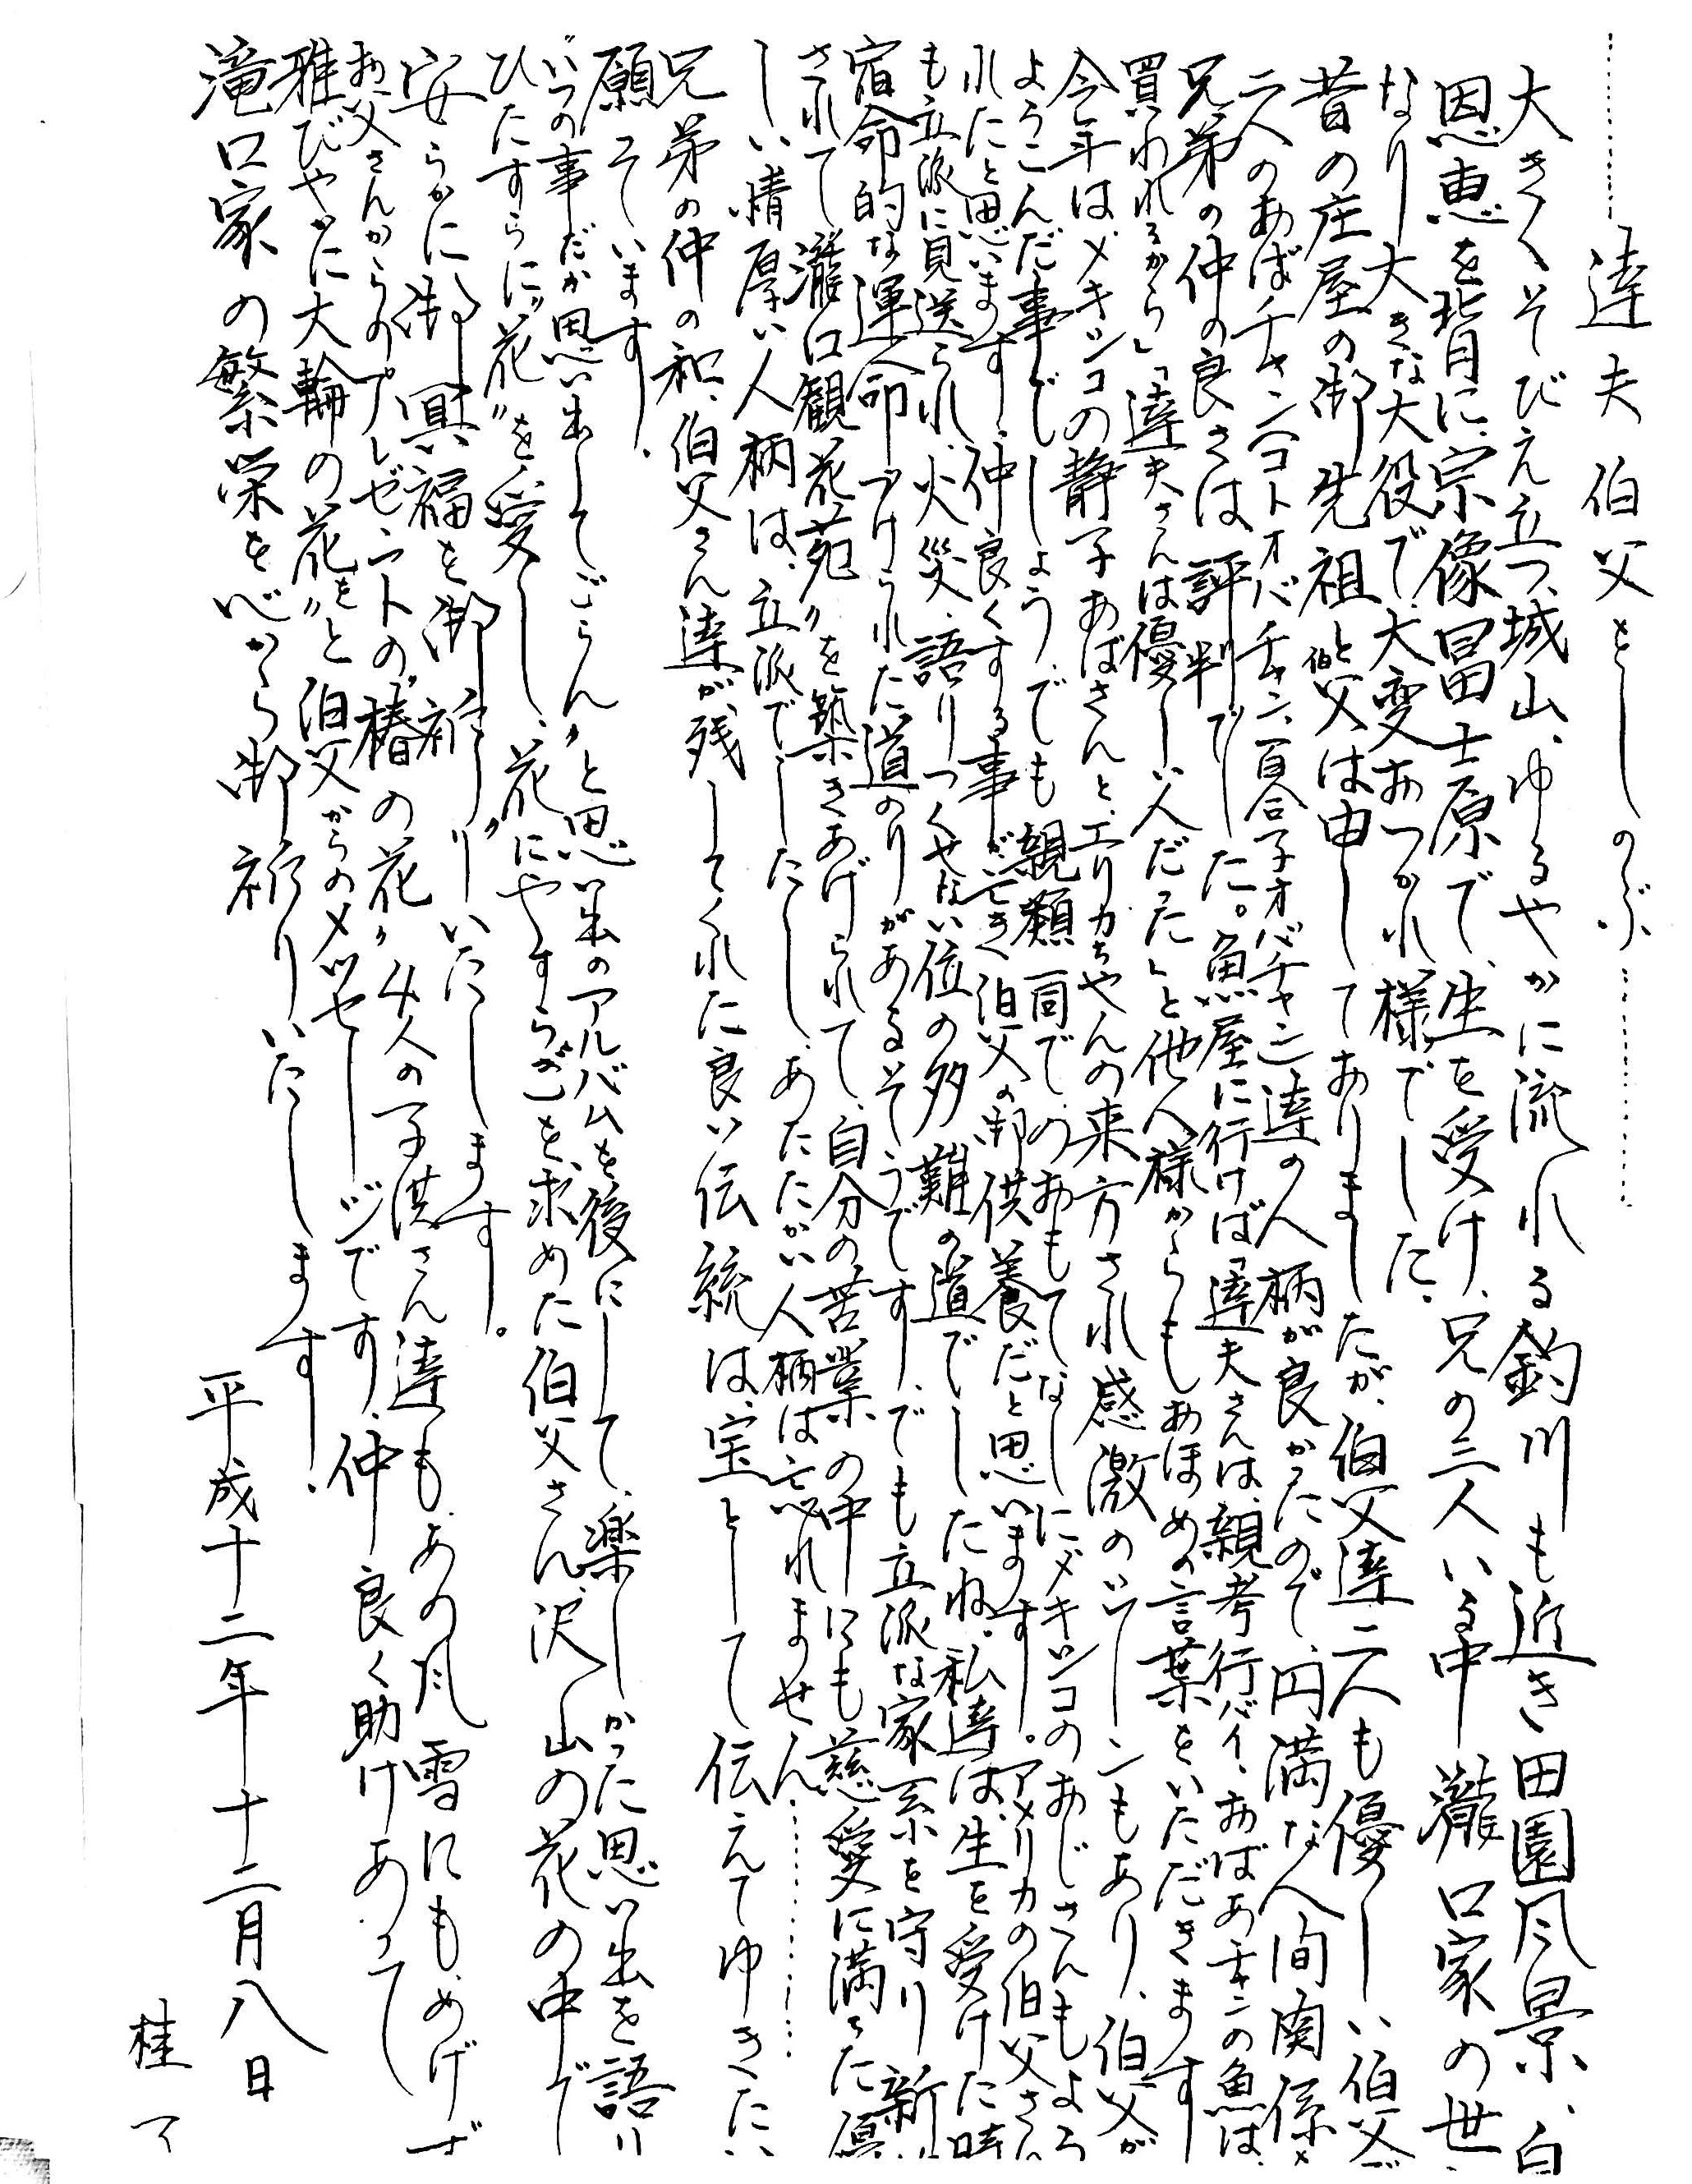 ……… 達夫伯父をしのぶ ………
大きくそびえ立つ、城山、ゆるやかに流れる釣川も近き田園風景、自
恩恵を背目に、宗像冨士原で、生を受け、兄の三人いる中 瀧口家の世
なり 大きな大役で、大変おつかれ様、でした。
昔の庄屋の御先祖と伯父は申しておりましたが、伯父達二人も優しい伯父で
二人のおばチャン(コトオバチャン、百合子オバチャン)達の人柄が良かったので、円満な人間関係を
兄弟の仲の良さは 評判でした。魚屋に行けば「達夫さんは、親考行バイ、おばあチャンの魚は、
買われるから」「達夫さんは優しい人だった」と他人様からもおほめの言葉をいただきます
今年はメキシコの静子おばさんと、エリカちゃんの来方され感激のシーンもあり、伯父が
よろこんだ事でしょう、でも 親類一同で、のおもてなしにメキシコのおじさんもよろ
れたと思います、仲良くする事が、亡き伯父の御供養だと思います。アメリカの伯父さん
も立派に見送られ、火災、語りつくせない位の多難の道でしたね、私達は、生を受けた時
宿命的な運命づけられた道のりがあるそうです、でも立派な家系を守り 新し
されて 瀧口観花苑〃を築きあげられて、自分の苦業の中にも慈愛に満ちた
しい情厚い人柄は、立派でしたし、あたたかい人柄は忘れません………
兄弟の仲の和、伯父さん達が、残してくれた良い伝統は、宝として伝えてゆきたい
願っています。
〃いつの事だか思い出してごらん〃と思い出のアルバムを後にして、楽しかった思い出を語り
ひたすらに〃花〃を愛し、花に「やすらぎ」を求めた伯父さん、沢山の花の中で
安らかに御冥福を御祈りいたします。
お父さんからのプレゼントの〃椿の花〃4人の子供さん達も、あの風雪にも、めげず
雅びやかに大輪の花を〃と伯父からのメッセージです、仲良く助けあって
滝口家の繁栄を心から御祈りいたします。
平成十二年十二月八日
桂